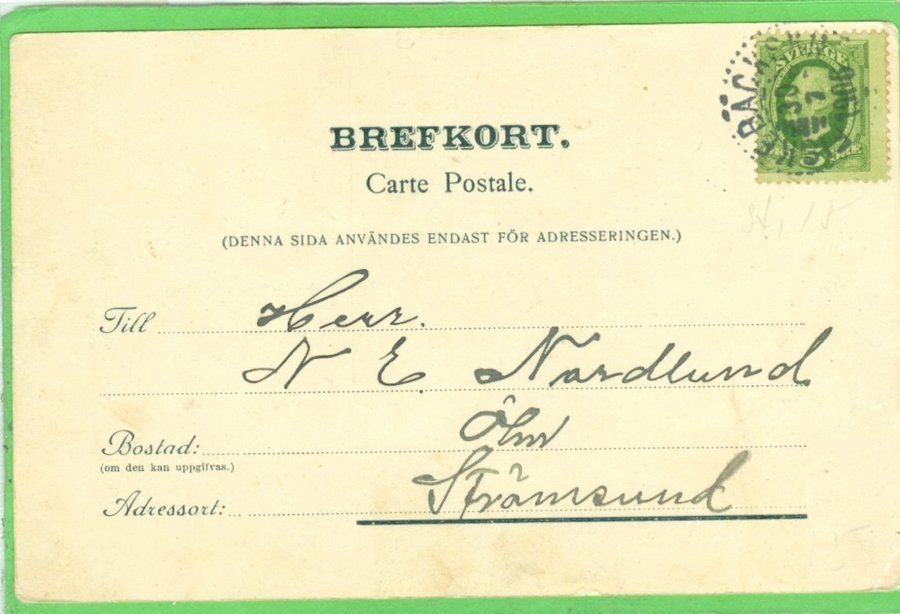 SVERIGE
5
BREFKORT.
Carte Postale.
(DENNA SIDA ANVÄNDES ENDAST FÖR ADRESSERINGEN.)
Till Herr.
N E Nordlund
Bostad: Öhn
(om den kan uppgifvas.)
Adressort: Strömsund